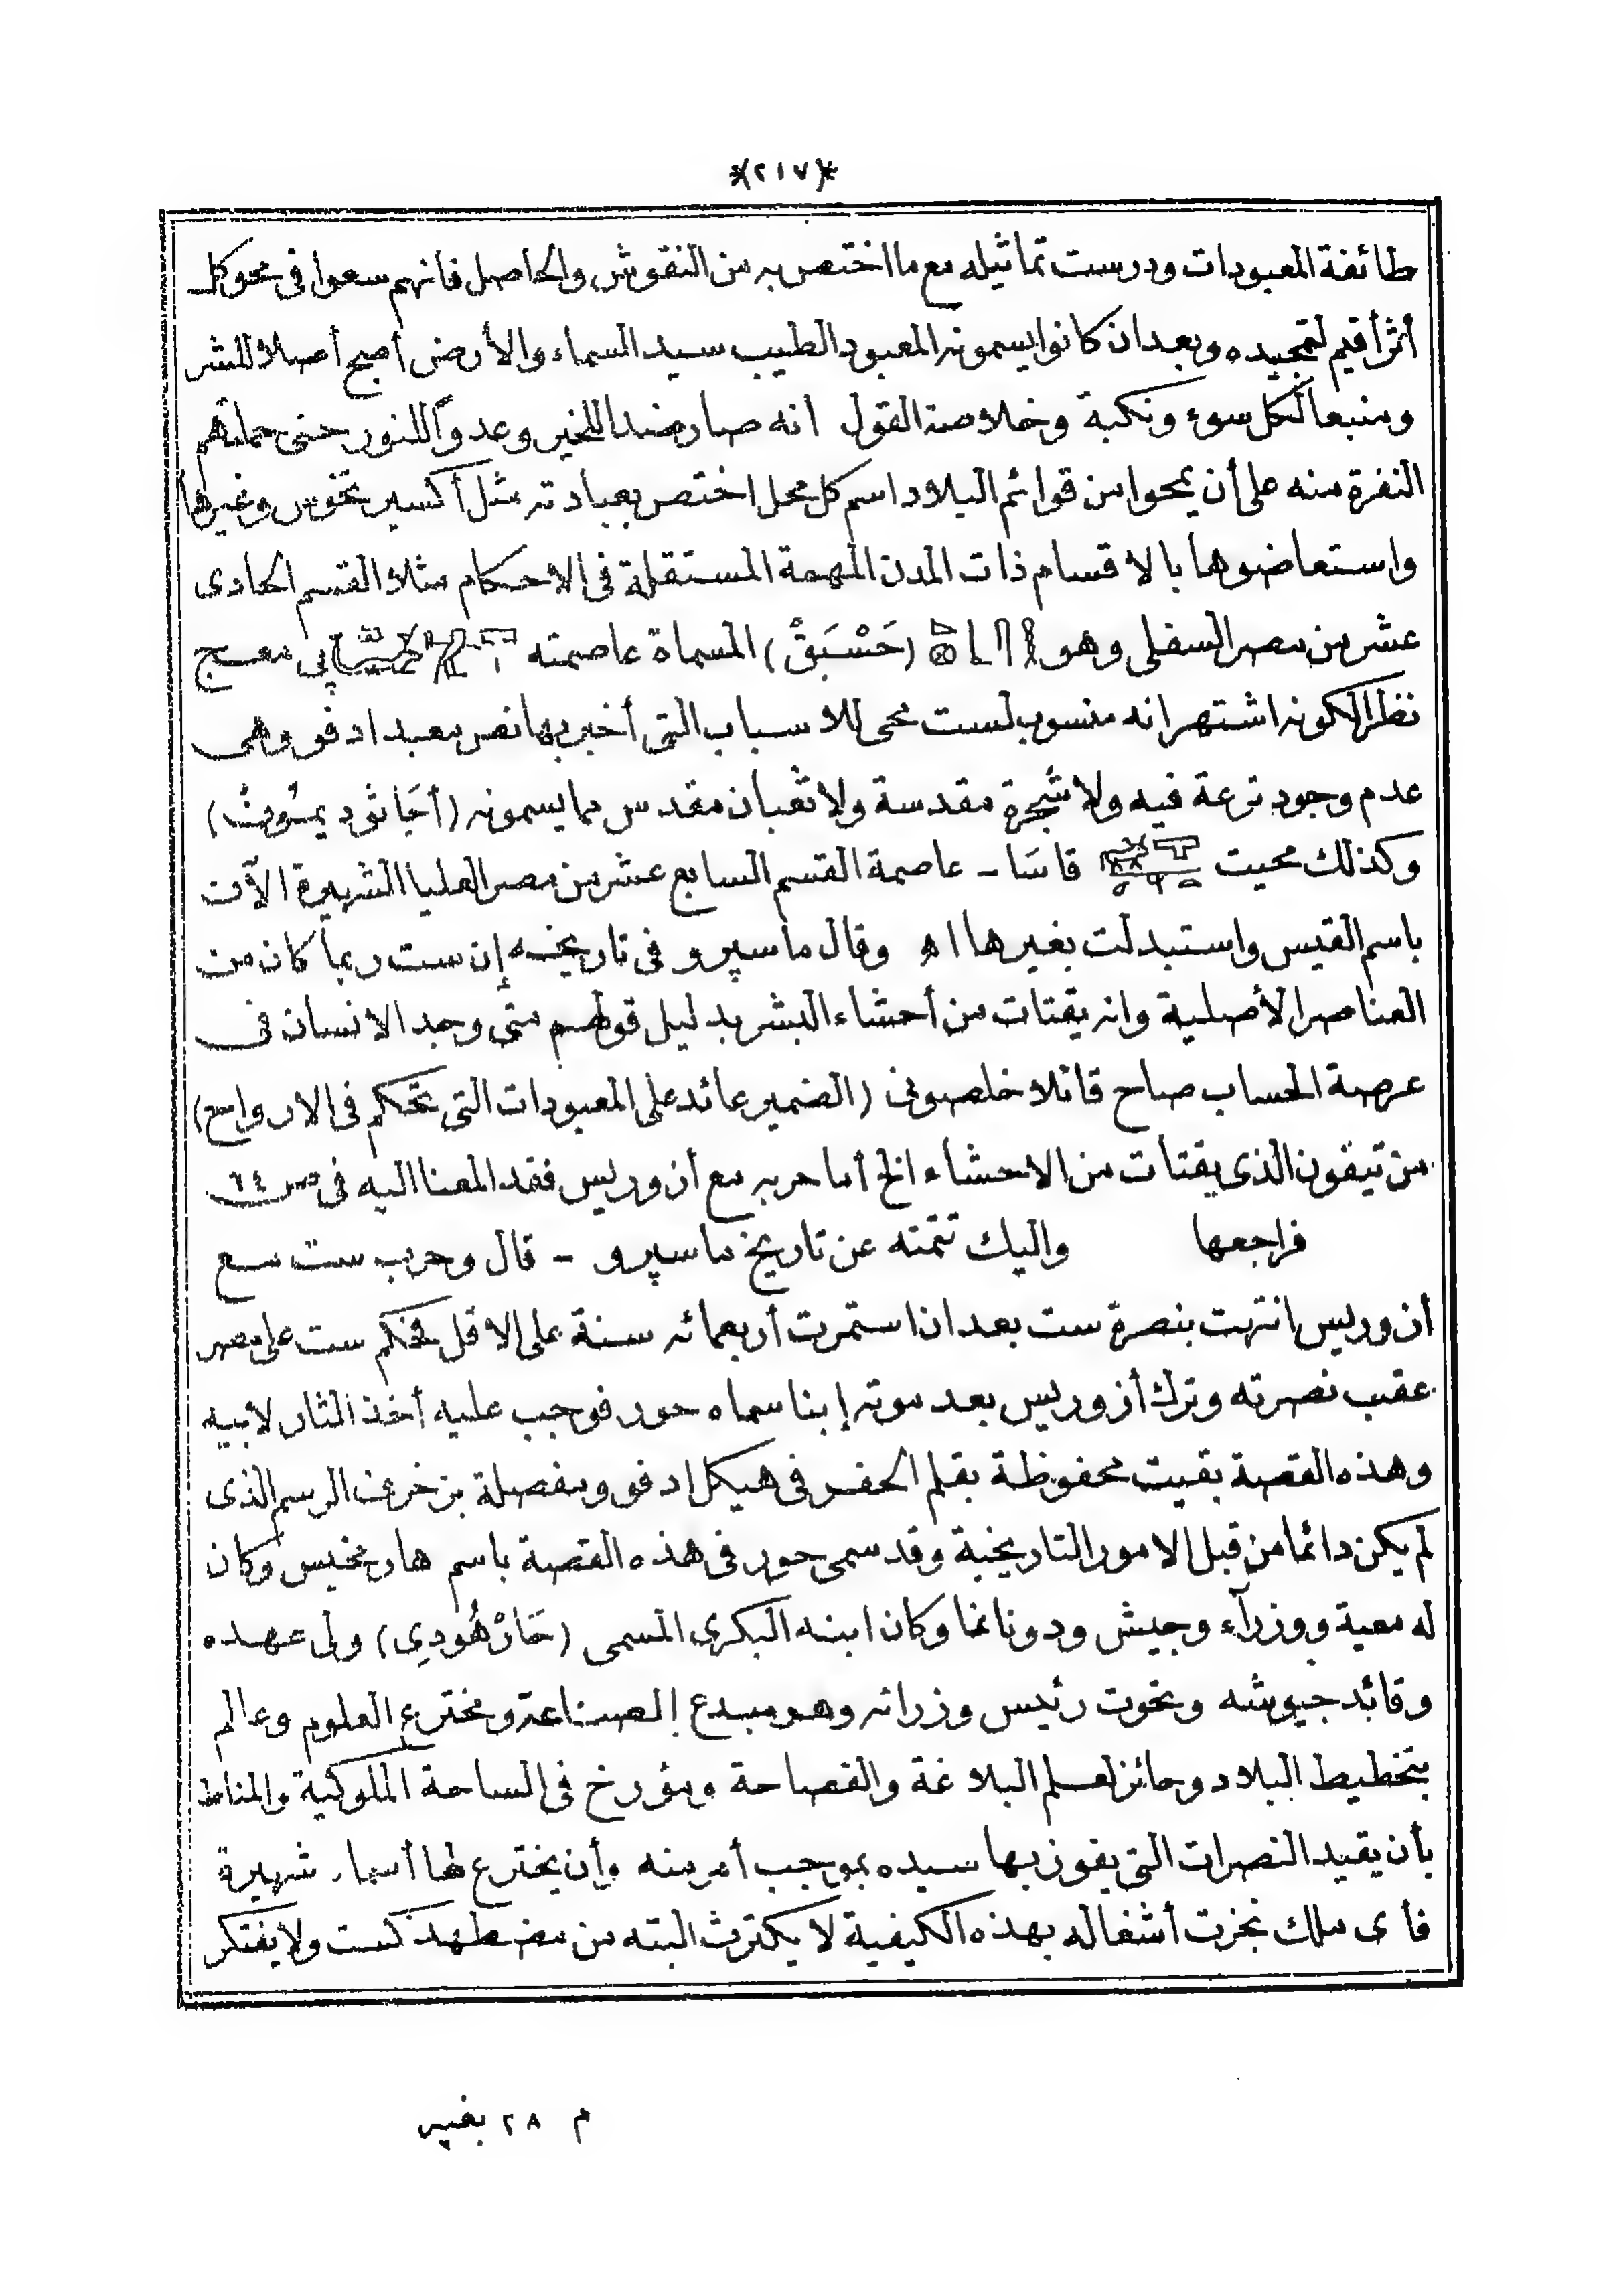 *(٢١٧)*
طائفة المعبودات ودرست تماثيله مع ما اختص به من النقوش والحاصل فانهم سعوا فى محو كل
أثر أقيم لتمجيده وبعد ان كانوا يسمونه المعبود الطيب سيد السماء والأرض أصبح أصلا للشر
ومنبعا لكل سوء ونكبة وخلاصة القول انه صار ضدا للخير وعدوّا للنور حتى حملتهم
النفرة منه على أن يمحوا من قوائم البلاد اسم كل محل اختص بعبادته مثل أكسيرنخوس وغيرها
واستعاضوها بالاقسام ذات المدن المهمة المستقلة فى الاحكام مثلا القسم الحادى
عشر من مصر السفلى وهو (حَسْبَقْ) المسماة عاصمته پى معسج
نظرا لكونه اشتهر انه منسوب لست محى للاسباب التى أخبر بها نص معبد ادفو وهى
عدم وجود ترعة فيه ولا شجرة مقدسة ولا ثعبان مقدس مما يسمونه
وكذلك محيت قاسَا ـ عاصمة القسم السابع عشر من مصر العليا الشهيرة الآن
باسم القيس واستبدلت بغيرها اه وقال ماسپرو فى تاريخه إن ست ربما كان من
العناصر الأصلية وانه يقتات من أحشاء البشر بدليل قولهم متى وجد الانسان فى
عرصة الحساب صاح قائلا خلصونى (الضمير عائد على المعبودات التى تحكم فى الارواح)
من تيفون الذى يقتات من الاحشاء الخ أما حربه مع أزوريس فقد المعنا اليه فى ص ٦٤
فراجعها واليك تتمته عن تاريخ ماسپرو ـ قال وحرب ست مع
أزوريس انتهت بنصرة ست بعد ان استمرت أربعمائه سنة على الاقل فحكم ست على مصر
عقب نصرته وترك أزوريس بعد موته إبنا سماه حور فوجب عليه أخذ الثار لابيه
وهذه القصة بقيت محفوظة بقلم الحفر فى هيكل ادفو ومفصلة بزخرف الرسم الذى
لم يكن دائما من قبل الامور التاريخية وقد سمى حور فى هذه القصة باسم هارمخيس وكان
له معية ووزرآء وجيش ودونانما وكان ابنه البكرى المسمى (حَارْهُودِى) ولى عهده
وقائد جيوشه وتحوت رئيس وزرائه وهو مبدع الصناعة ومخترع العلوم وعالم
بتخطيط البلاد وحائز لعلم البلاغة والفصاحة ومؤرخ فى الساحة الملوكية والمناط
بأن يقيد النصرات التى يفوز بها سيده بموجب أمر منه وأن يخترع لها أسماء شهيرة
فأى ملك نجزت أشغاله بهذه الكيفية لا يكترث البته من مضطهد كست ولا يفتكر
م ٢٨ بغيه